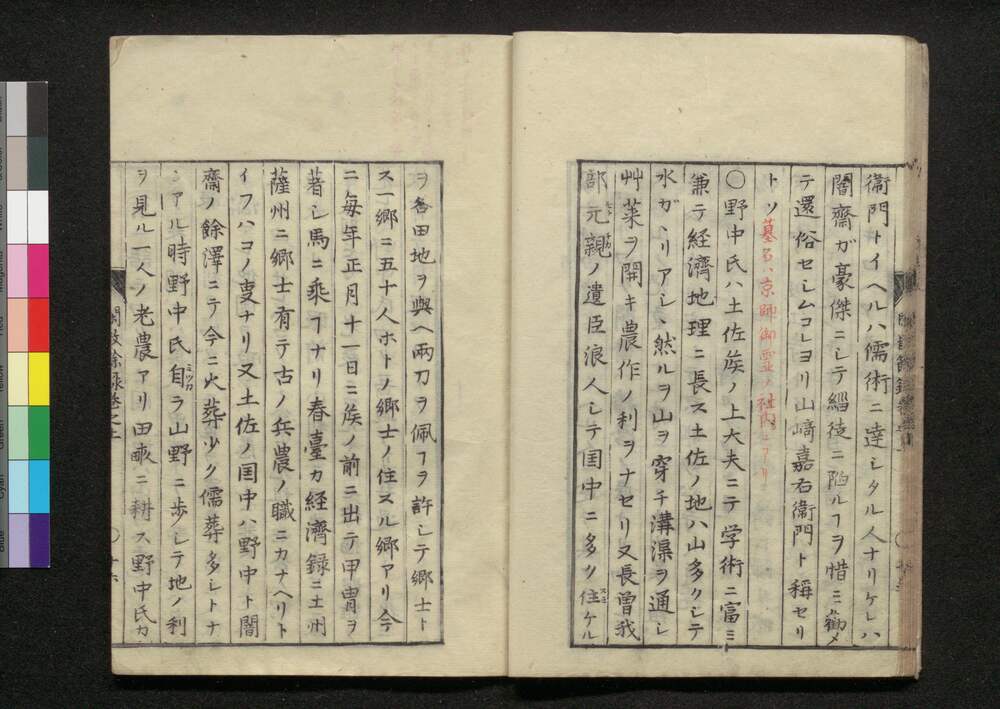 衞門トイヘルハ儒術ニ達シタル人ナリケレハ
闇齋ガ豪傑ニシテ緇徒ニ陷ルヿヲ惜ミ勸メ
テ還俗セシムコレヨリ山﨑嘉右衞門ト稱セリ
トソ墓名ハ京師御霊ノ社内ニアリ
〇野中氏ハ土佐矦ノ上大夫ニテ学術ニ富ミ
兼テ経濟地理ニ長ス土佐ノ地ハ山多クシテ
水ガヽリアシヽ然ルヲ山ヲ穿チ溝渠ヲ通シ
艸莱ヲ開キ農作ノ利ヲナセリ又長曽我
部元親ノ遺臣浪人シテ国中ニ多ク住ケル
ヲ各田地ヲ與ヘ兩刀ヲ佩フヲ許シテ郷士ト
ス一郷ニ五十人ホトノ郷士ノ住スル郷アリ今
ニ毎年正月十一日ニ矦ノ前ニ出テ甲冑ヲ
著シ馬ニ乘ルナリ春臺カ経濟録ニ土州
薩州ニ郷士有テ古ノ兵農ノ職ニカナヘリト
イフハコノ叓ナリ又土佐ノ国中ハ野中ト闇
齋ノ餘澤ニテ今ニ火葬少ク儒葬多シトナ
ンアル時野中氏自ラ山野ニ歩シテ地ノ利
ヲ見ル一人ノ老農アリ田畞ニ耕ス野中氏カ
間散餘録巻之上